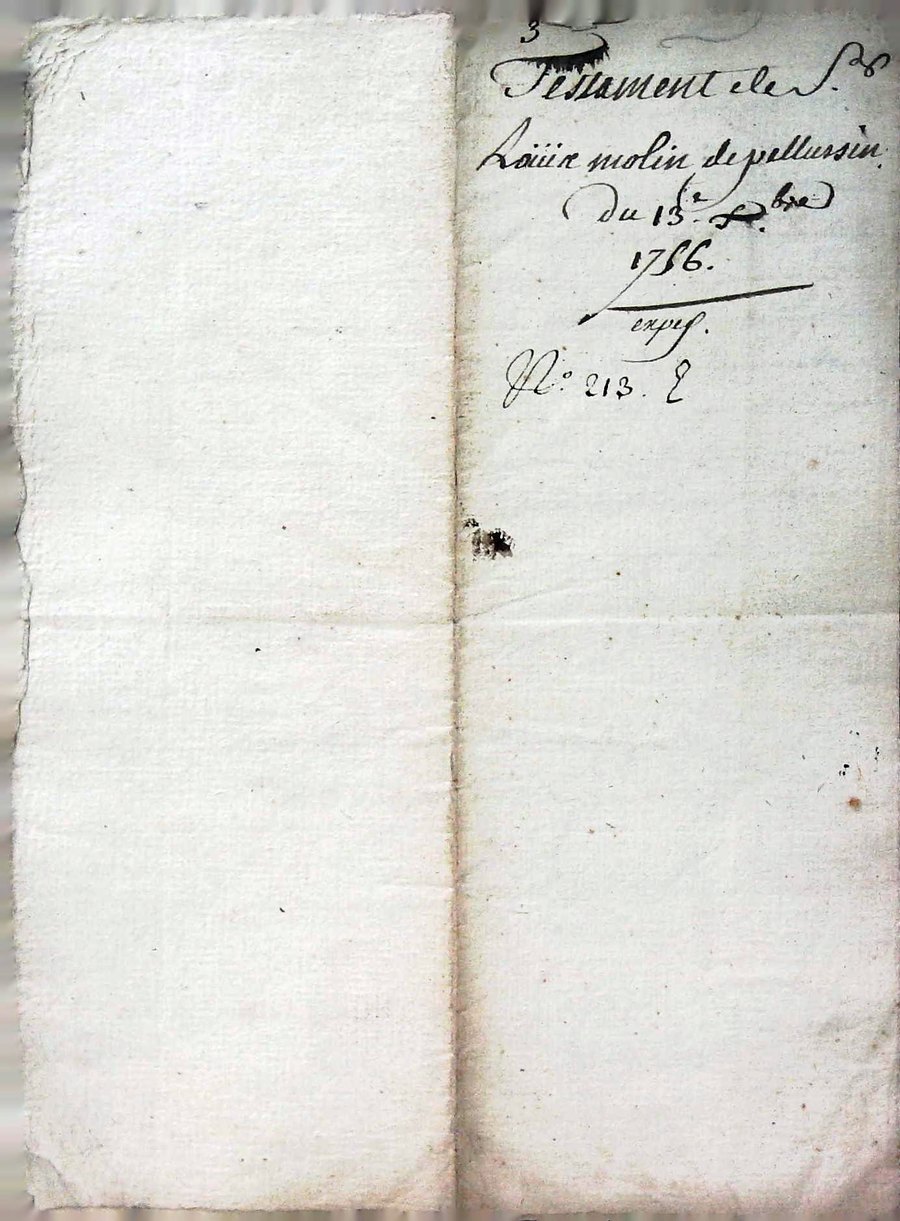 3
Testament de S.r
molin de pellussin.
Du 13.e bre
1756.
expef.
N.o 213.